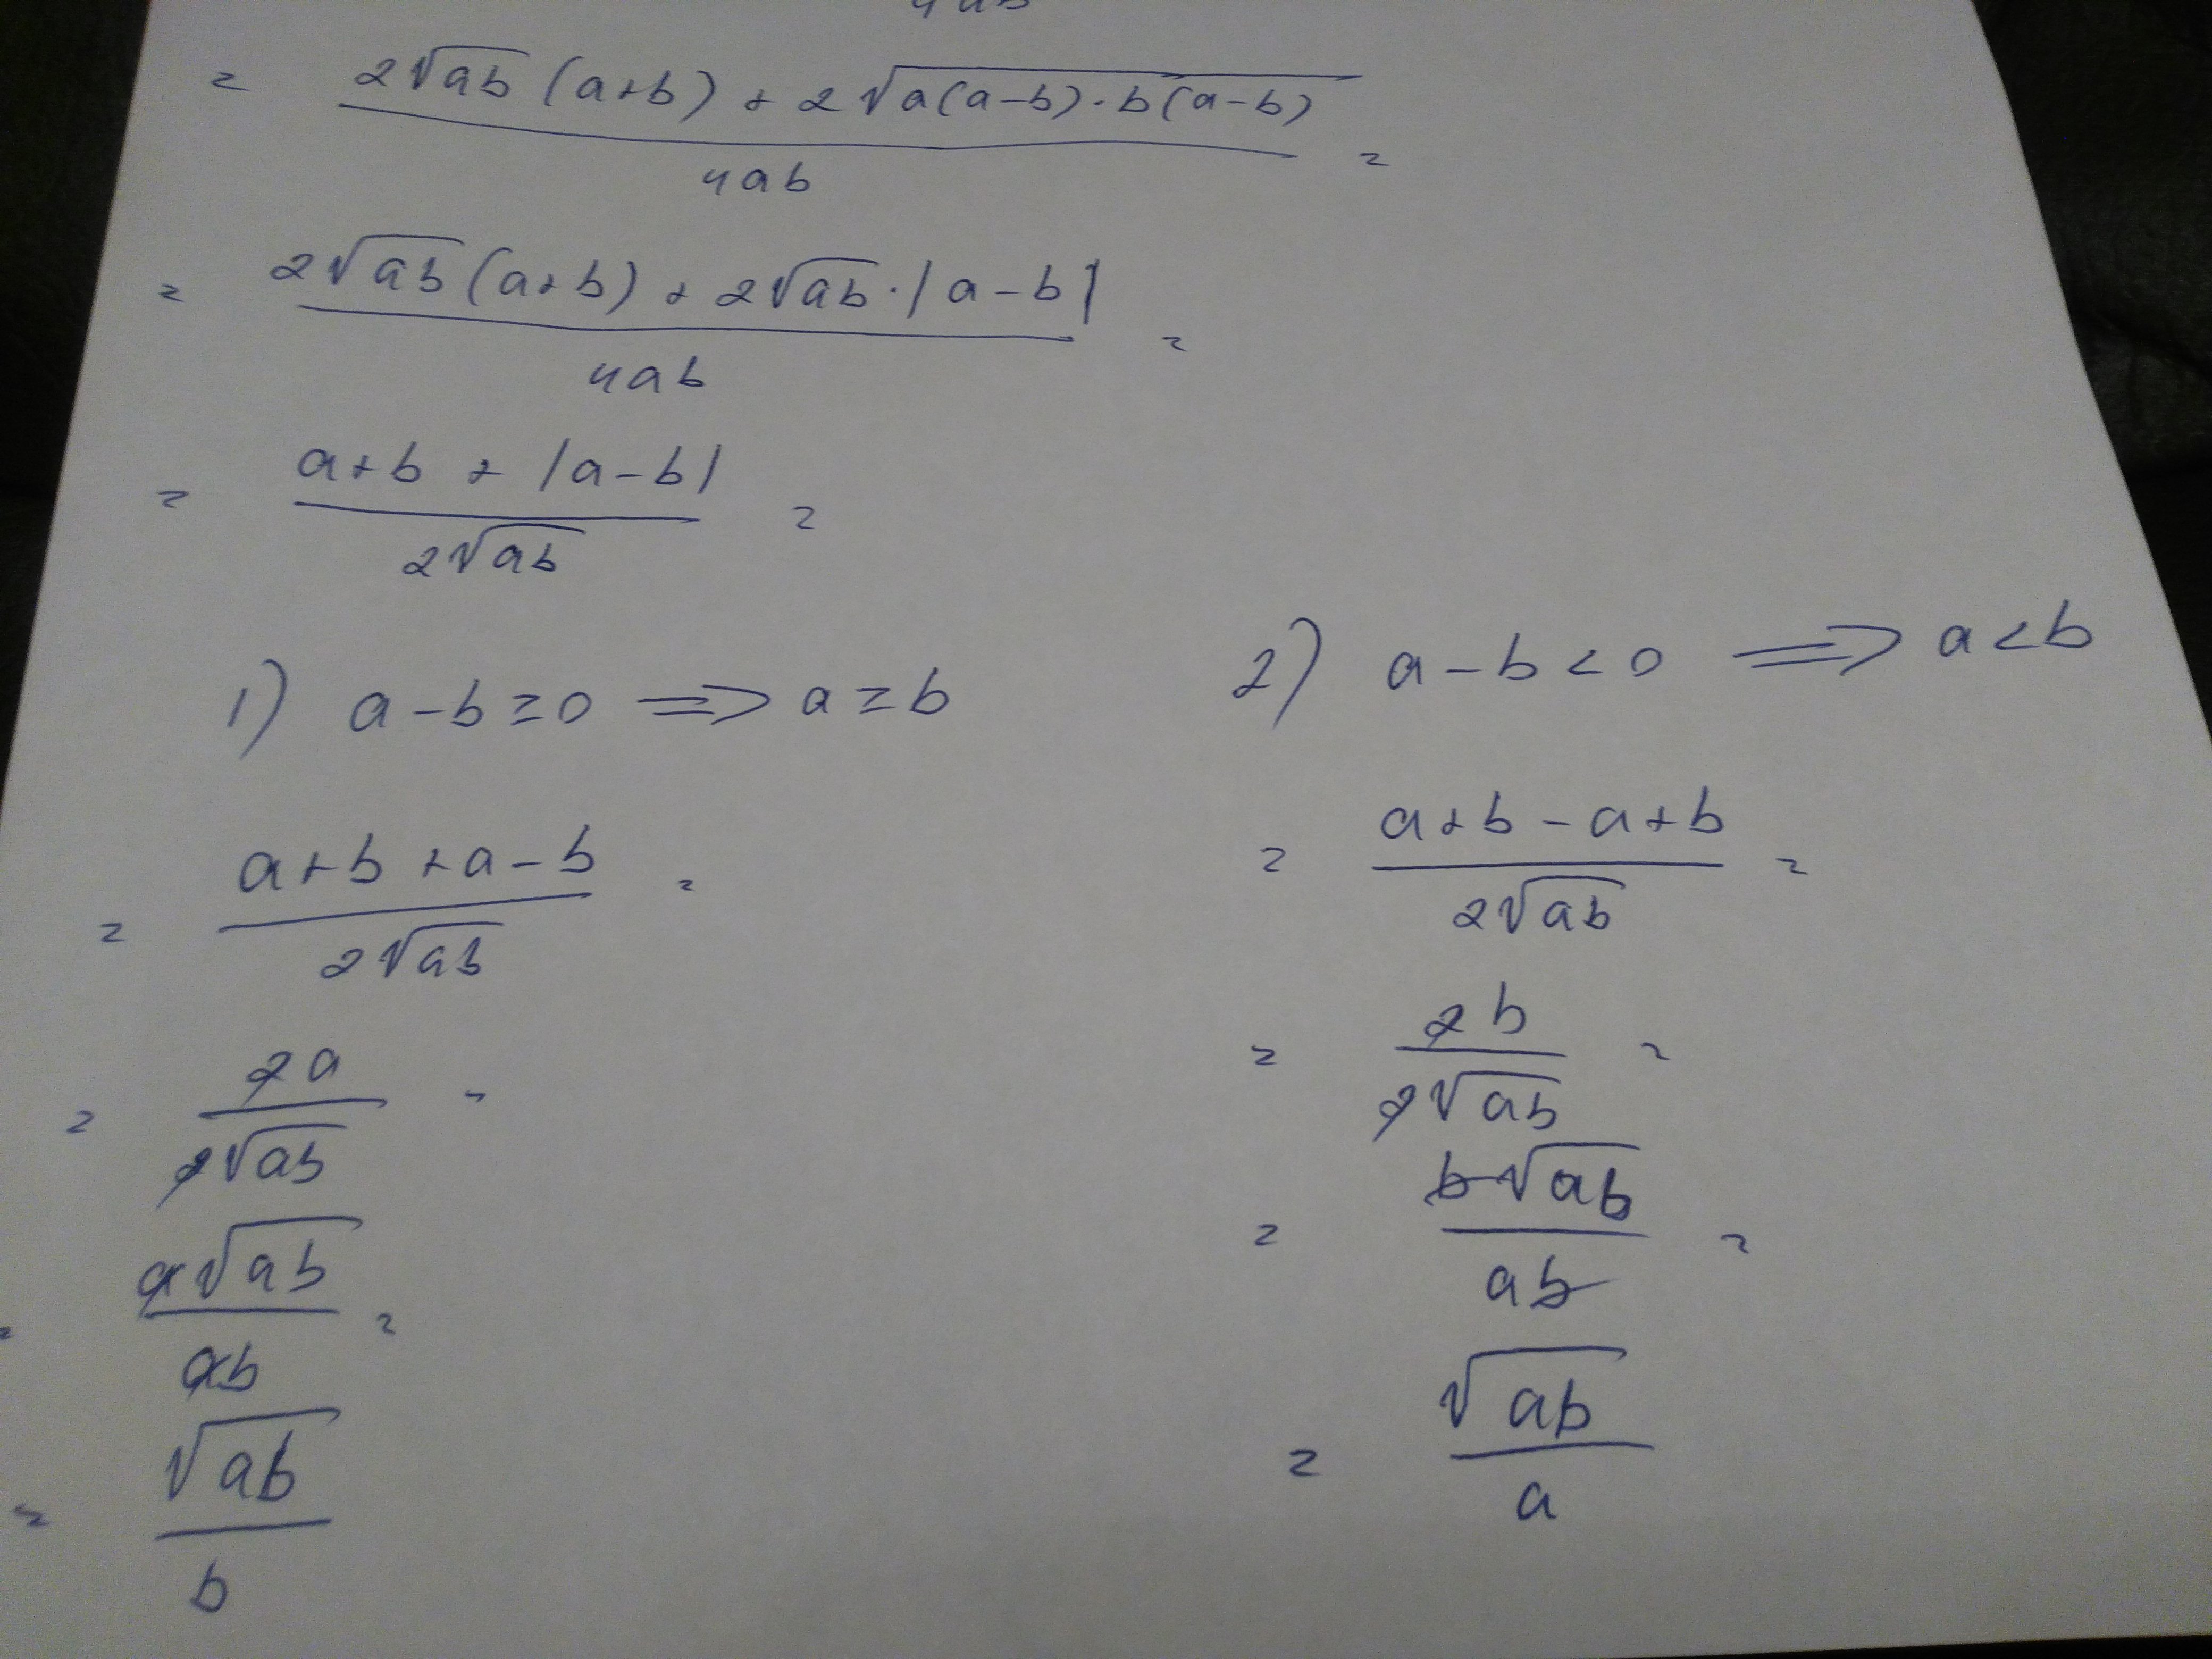 = (2√ab (a+b) + 2√(a(a-b)·b(a-b))) / 4ab =
= (2√ab (a+b) + 2√ab · |a-b|) / 4ab =
= (a+b + |a-b|) / 2√ab =
1) a-b≥0 ⟹ a≥b
= (a+b+a-b) / 2√ab =
= 2a / 2√ab =
= a√ab / ab =
= √ab / b
2) a-b<0 ⟹ a<b
= (a+b-a+b) / 2√ab =
= 2b / 2√ab =
= b√ab / ab =
= √ab / a